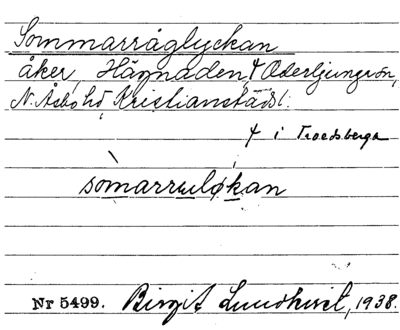 Sommarråglyckan
åker, Hägnaden, ⸸ Oderljunga sn,
N. Åsbo hd, Kristianstads l.
⸸ i Troedsberga
sòmarrulø̨kan
Nr 5499. Birgit Lundkvist, 1938.